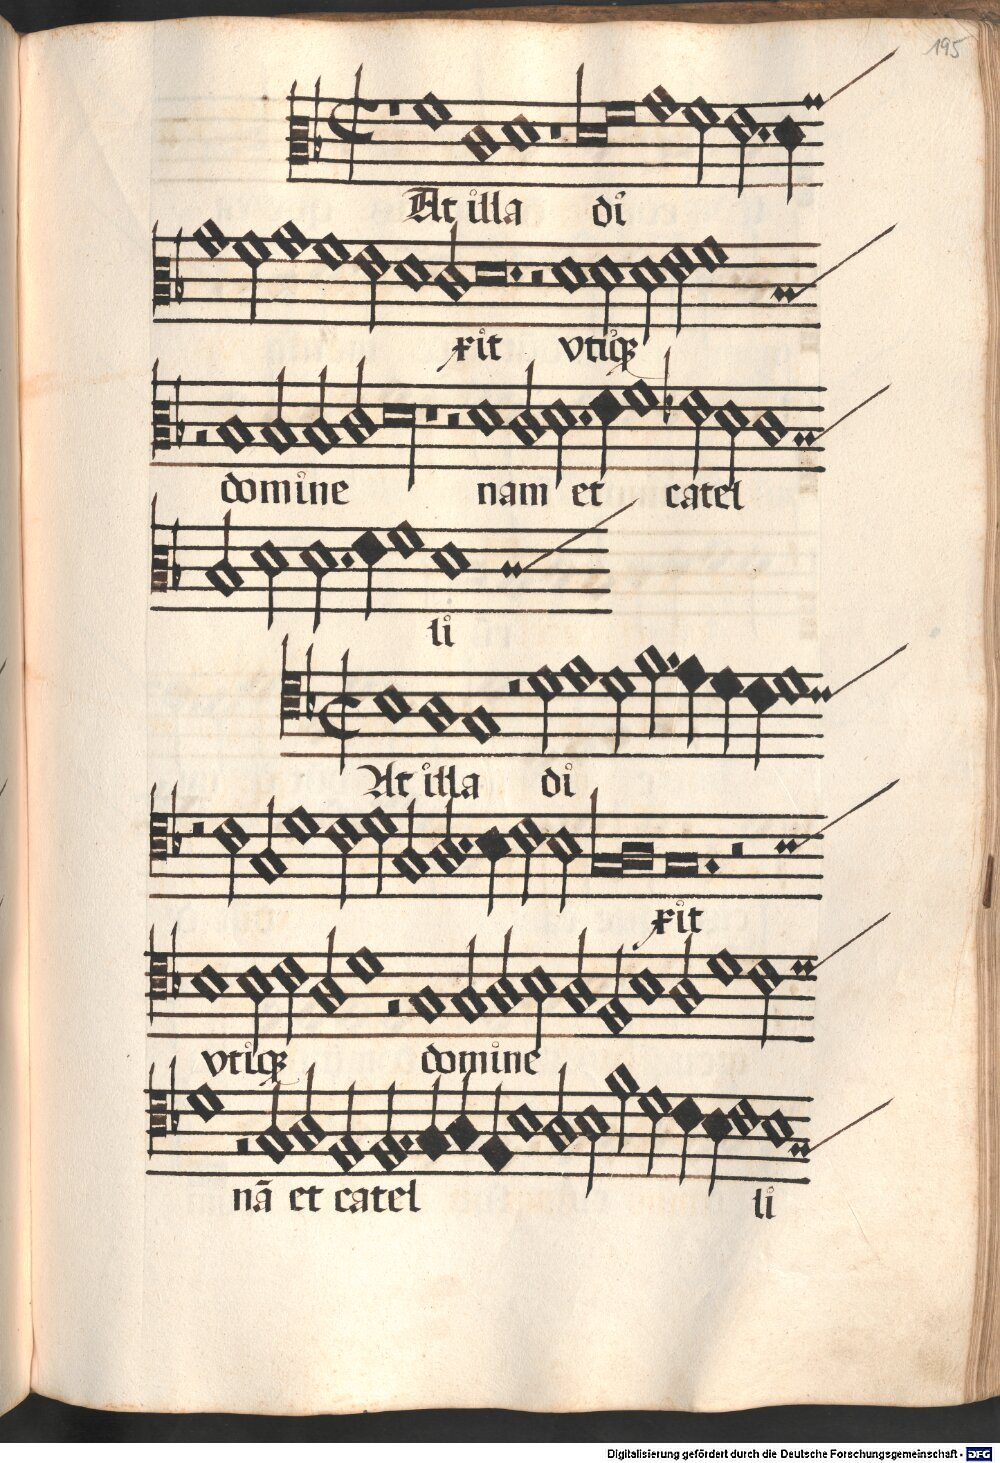 195
At illa di
xit vtiqꝫ
domine nam et catel
li
At illa di
xit
vtiqꝫ domine
nā et catel li
Digitalisierung gefördert durch die Deutsche Forschungsgemeinschaft - DFG